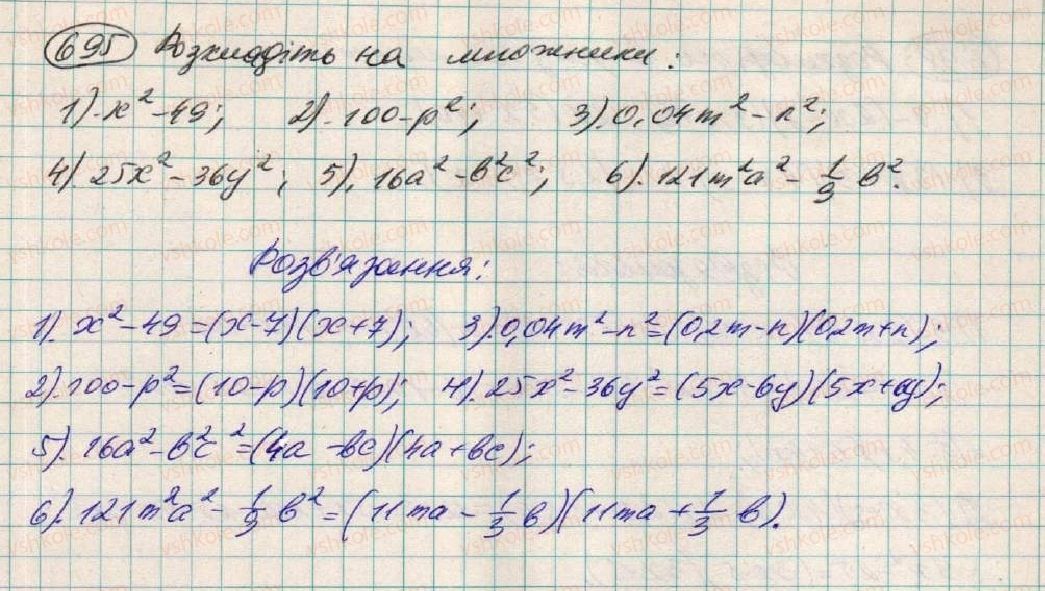 695 Розкладіть на множники:
1). x² - 49; 2). 100 - p²; 3). 0,04m² - n²;
4). 25x² - 36y²; 5). 16a² - b²c²; 6). 121m²a² - 1/9 b².
Розв'язання:
1). x² - 49 = (x - 7)(x + 7); 3). 0,04m² - n² = (0,2m - n)(0,2m + n);
2). 100 - p² = (10 - p)(10 + p); 4). 25x² - 36y² = (5x - 6y)(5x + 6y);
5). 16a² - b²c² = (4a - bc)(4a + bc);
6). 121m²a² - 1/9 b² = (11ma - 1/3 b)(11ma + 1/3 b).